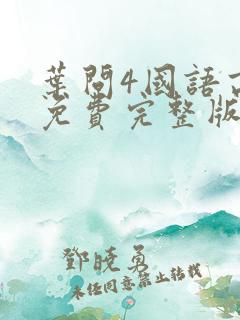 葉問4國語
免費完整版
鄧曉勇
未經同意禁止轉載